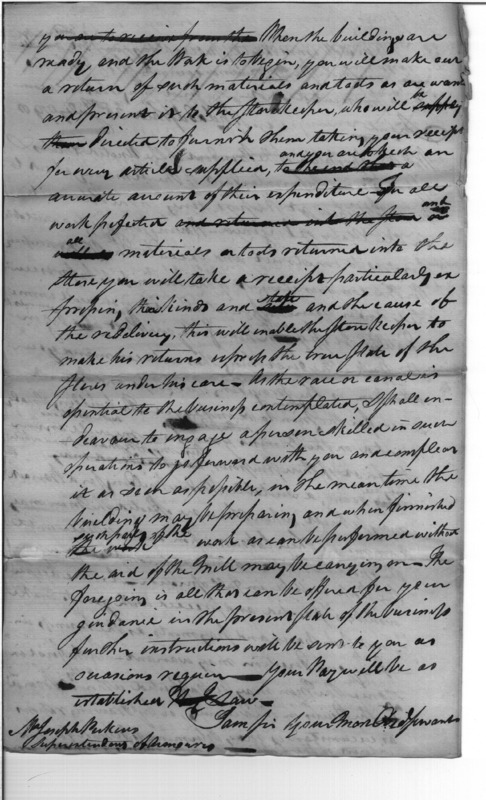 When the buildings are
ready and the Work is to begin, you will make out
a return of such materials and tools as are want
and present it to the Storekeeper, who will be
directed to furnish them taking your receipt
for every article supplied, and you are to keep an
accurate account of their expenditure for all
work perfected and
all materials or tools returned into the
Store you will take a receipt particularly ex
pressing the kinds and state and the cause of
the redelivery, this will enable the Store keeper to
make his returns express the true state of the
Stores under his care – As the race or canal is
essential to the business contemplated, I shall en-
deavour to engage a person skilled in such
operations to go forward with you and compleat
it as soon as possible, in the mean time the
buildings may be preparing and when finished
such part of the work as can be performed without
the aid of the Mill may be carrying on – The
foregoing is all that can be offered for your
guidance in the present state of the business
further instructions will be sent to you as
occasions require — Your Pay will be as
established by Law –
I am Sir Your Most Obd Servant
Mr Joseph Perkins
Superintendent of Armourers